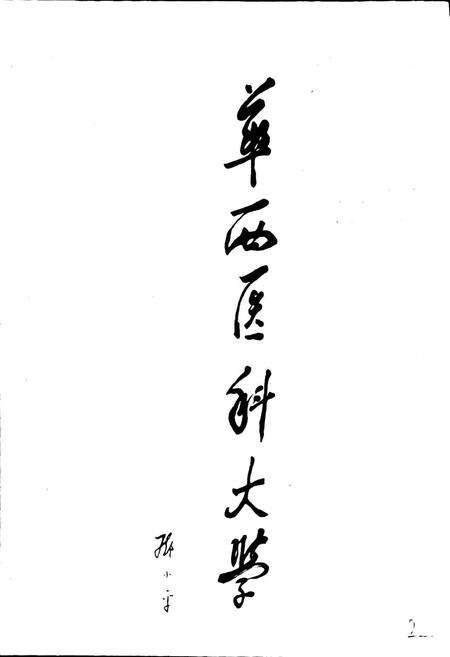 華西医科大學
邓小平
2